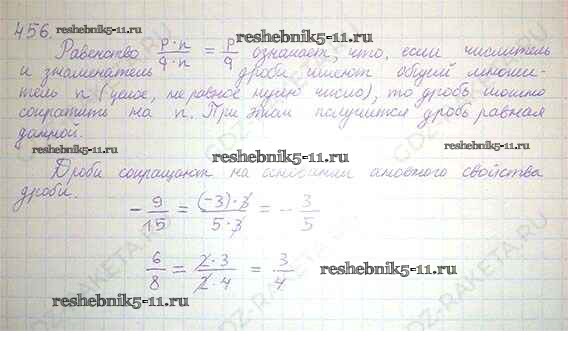 456. reshebnik5-11.ru
Равенство p·n/q·n = p/q означает, что, если числитель
и знаменатель reshebnik5-11.ru дроби имеют общий множи-
тель n (целое, не равное нулю число), то дробь можно
сократить на n. При этом получится дробь равная
данной.
reshebnik5-11.ru reshebnik5-11.ru
Дроби сокращают на основании основного свойства
дроби.
- 9/15 = (-3)·3/5·3 = - 3/5
6/8 = 2·3/2·4 = 3/4 reshebnik5-11.ru
reshebnik5-11.ru
GDZ-RAKETA.RU